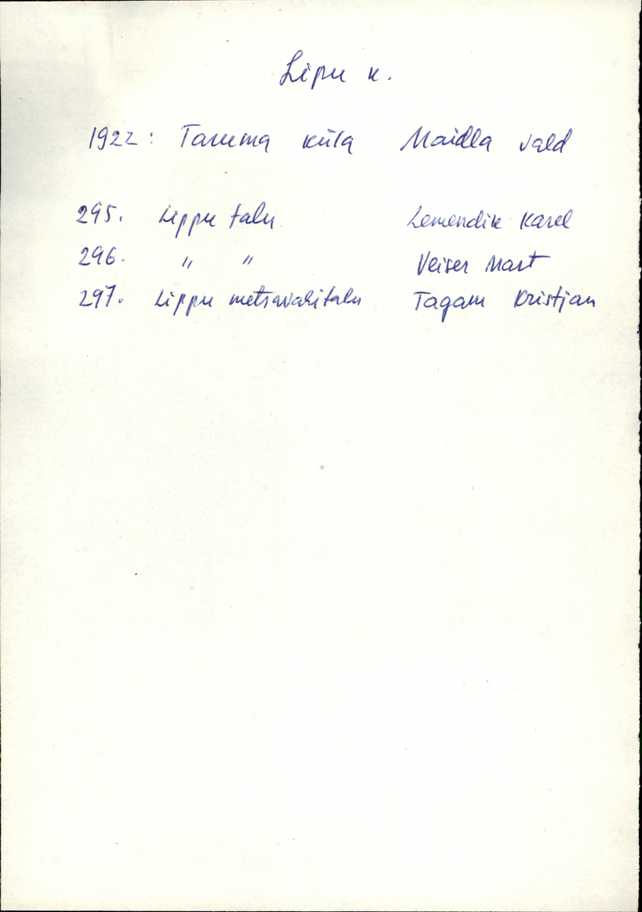 Lipu k.
1922: Tarumaa küla Maidla vald
295. Lippu talu Lemendik Karel
296. " " Veiser Mart
297. Lippu metsavahitalu Tagam Kristjan